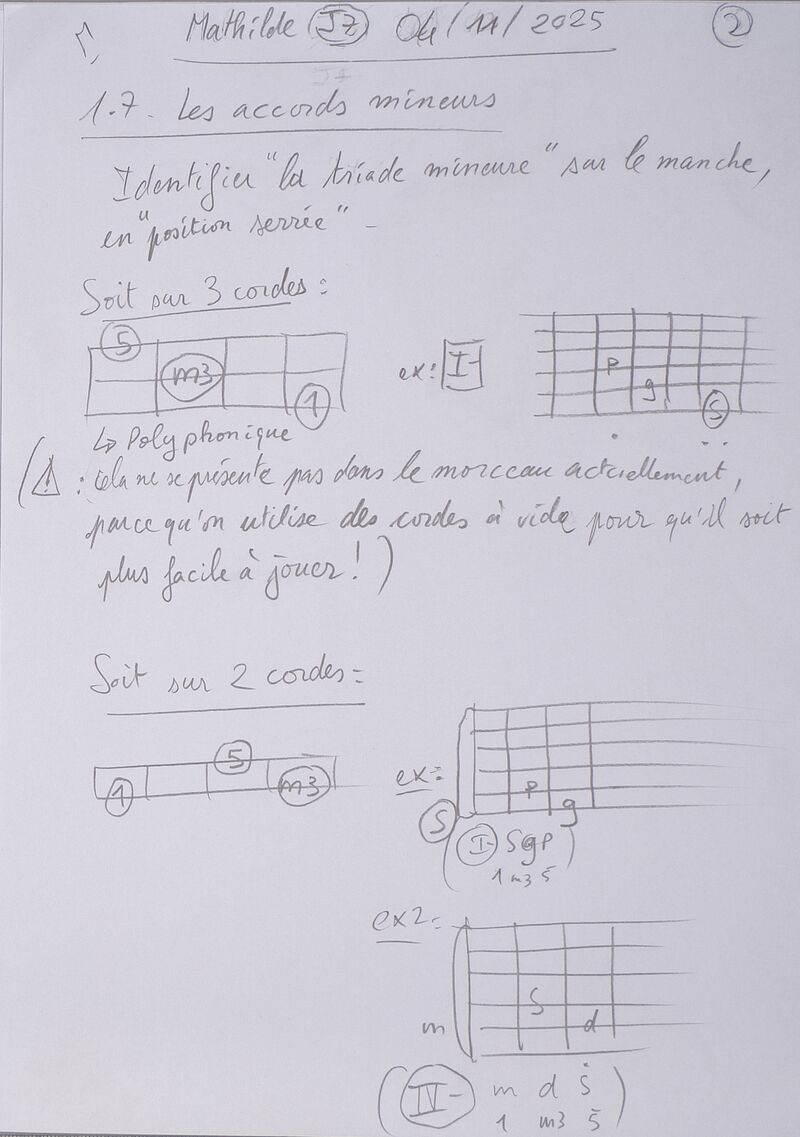 Mathilde J7 04/11/2025 2
1.7. Les accords mineurs
Identifier "la triade mineure" sur le manche,
en "position serrée" -
Soit sur 3 cordes :
5
m3
1
ex: I-
p
g
S
↳ Polyphonique
(⚠ : Cela ne se présente pas dans le morceau actuellement,
parce qu'on utilise des cordes à vide pour qu'il soit
plus facile à jouer ! )
Soit sur 2 cordes =
5
1 m3
ex=
p
S g
(I- S g p)
1 m3 5
ex2=
S
m d
(IV- m d S)
1 m3 5